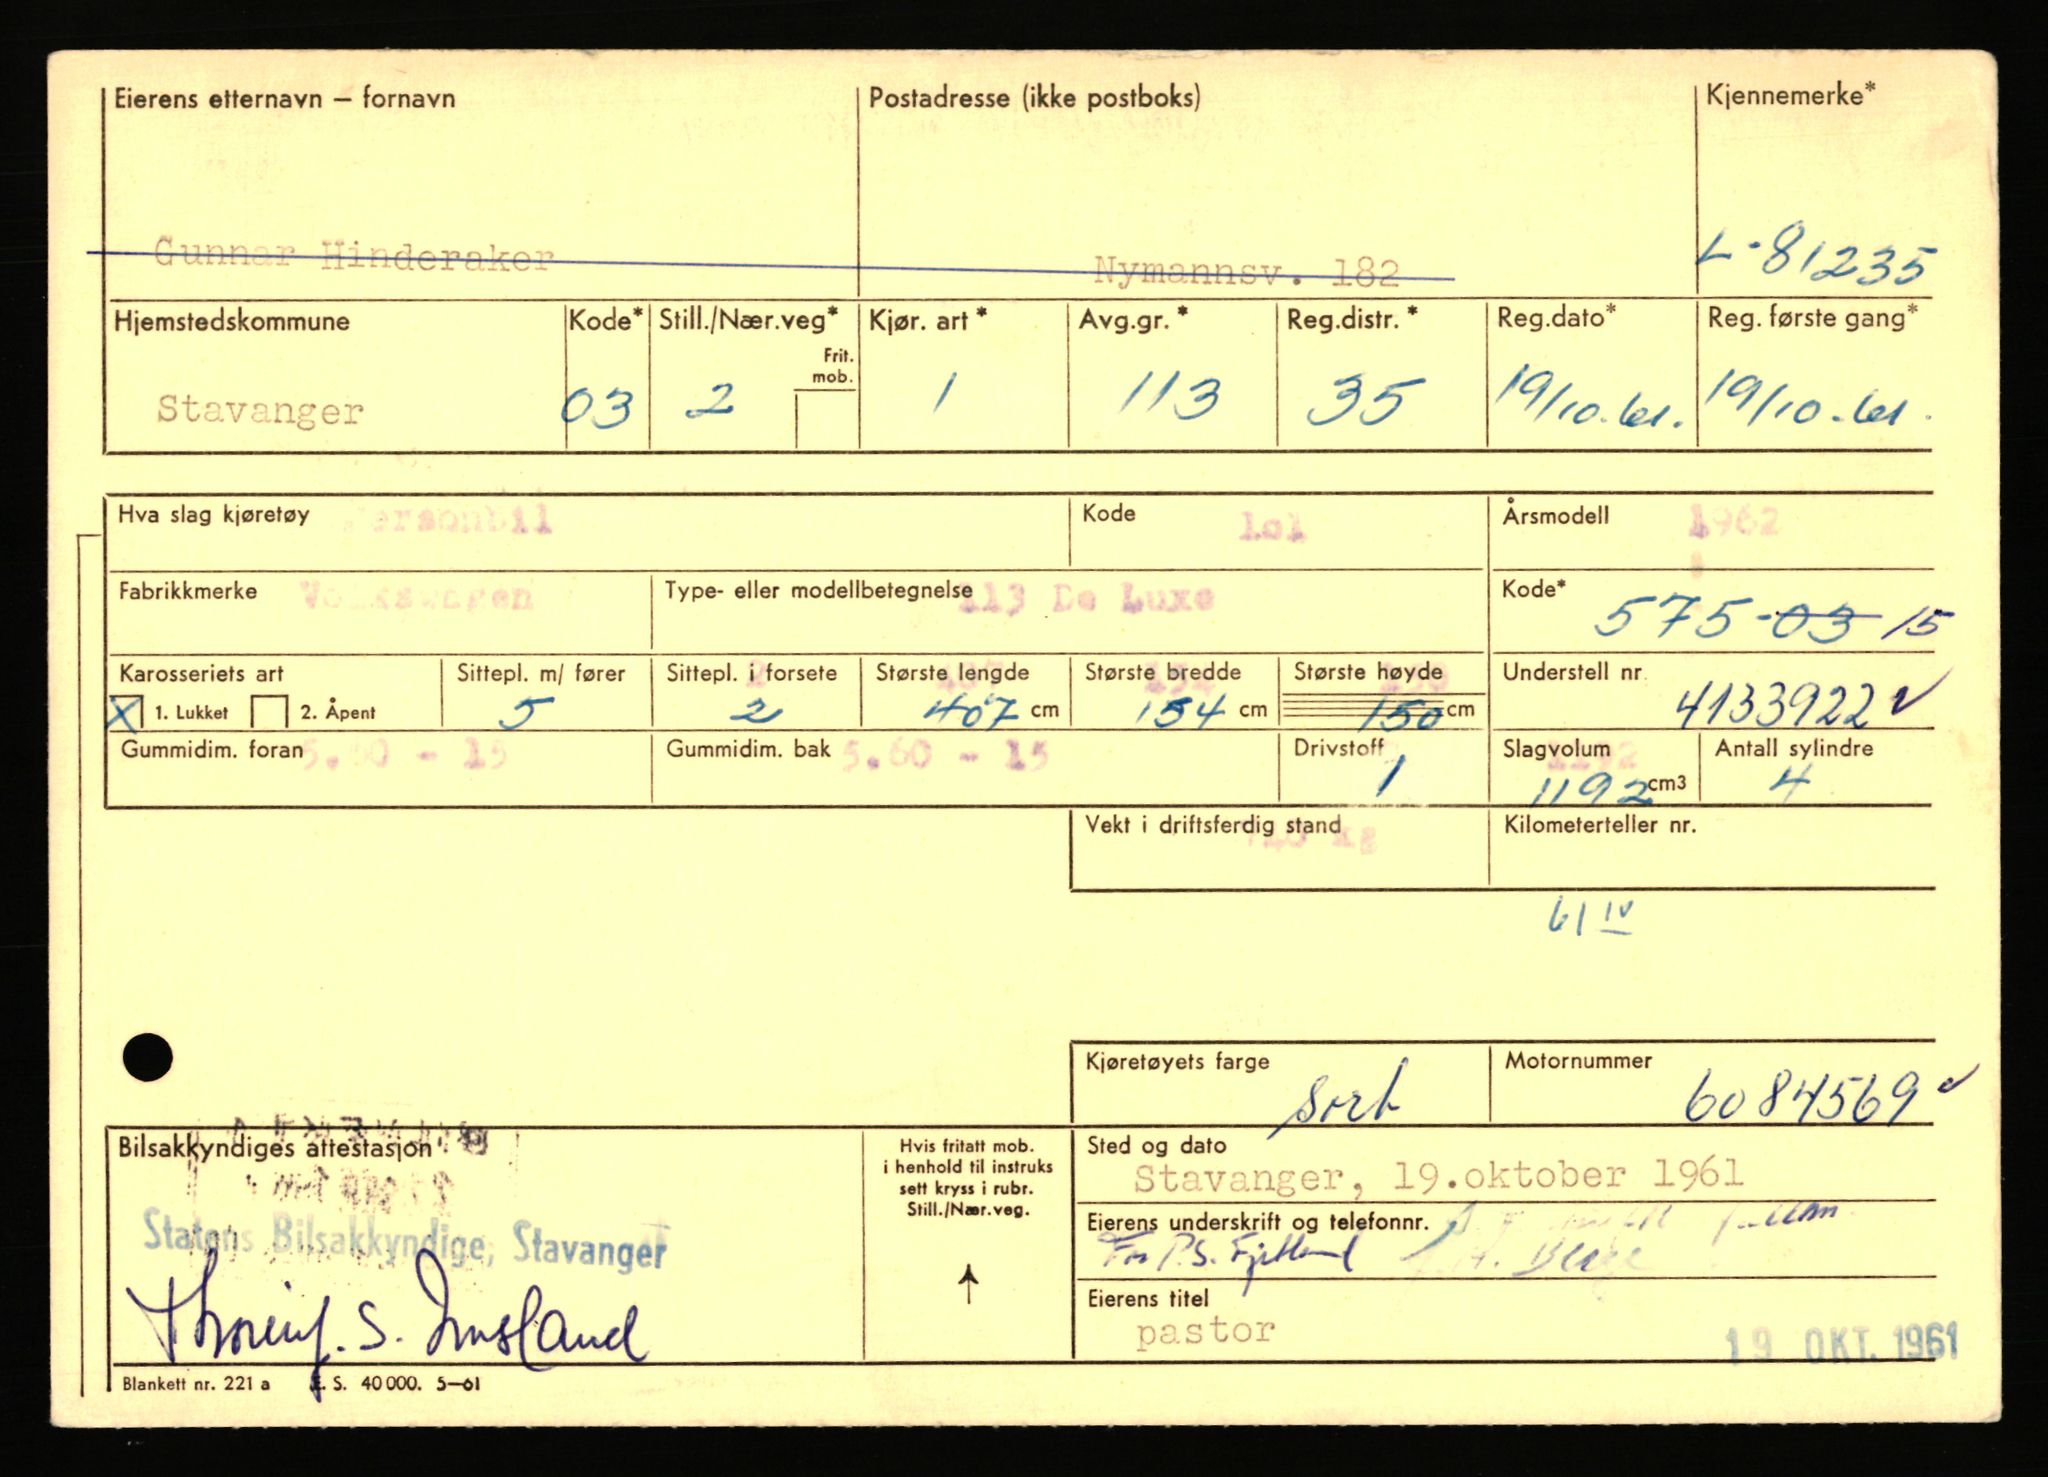 Eierens etternavn – fornavn Postadresse (ikke postboks) Kjennemerke*
Gunnar Hinderaker Nymannsv. 182 L-81235
Hjemstedskommune Kode* Still./Nær.veg* Kjør. art * Avg.gr. * Reg.distr. * Reg.dato* Reg. første gang*
Frit.
mob.
Stavanger 03 2 1 113 35 19/10-61. 19/10-61.
Hva slag kjøretøy Personbil Kode 1.01 Årsmodell 1962
Fabrikkmerke Volkswagen Type- eller modellbetegnelse 113 De Luxe Kode*
575-03 15
Karosseriets art Sittepl. m/ fører Sittepl. i forsete 2 Største lengde 407 Største bredde Største høyde 150 Understell nr
X 1. Lukket 2. Åpent 5 2 407 cm 154 cm 150 cm 4133922 ✓
Gummidim. foran 5.60 - 15 Gummidim. bak 5.60 - 15 Drivstoff Slagvolum 1192 Antall sylindre
1 1192 cm3 4
Vekt i driftsferdig stand kg Kilometerteller nr.
61 IV
Kjøretøyets farge Motornummer
Sort 6084569 ✓
Bilsakkyndiges attestasjon Hvis fritatt mob. Sted og dato
i henhold til instruks
sett kryss i rubr.
Still./Nær.veg.
Stavanger, 19.oktober 1961
Statens Bilsakkyndige, Stavanger
Eierens underskrift og telefonnr.
For P.S. Fjetland
S. Imsland
Eierens titel
pastor
19 OKT. 1961
Blankett nr. 221 a E. S. 40 000. 5–61